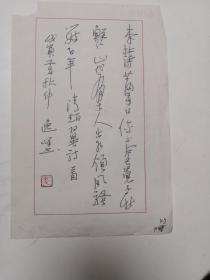 李杜诗篇万口传至今已觉不新
鲜江山代有才人出各领风骚
数百年清赵翼诗一首
戊寅年秋仲